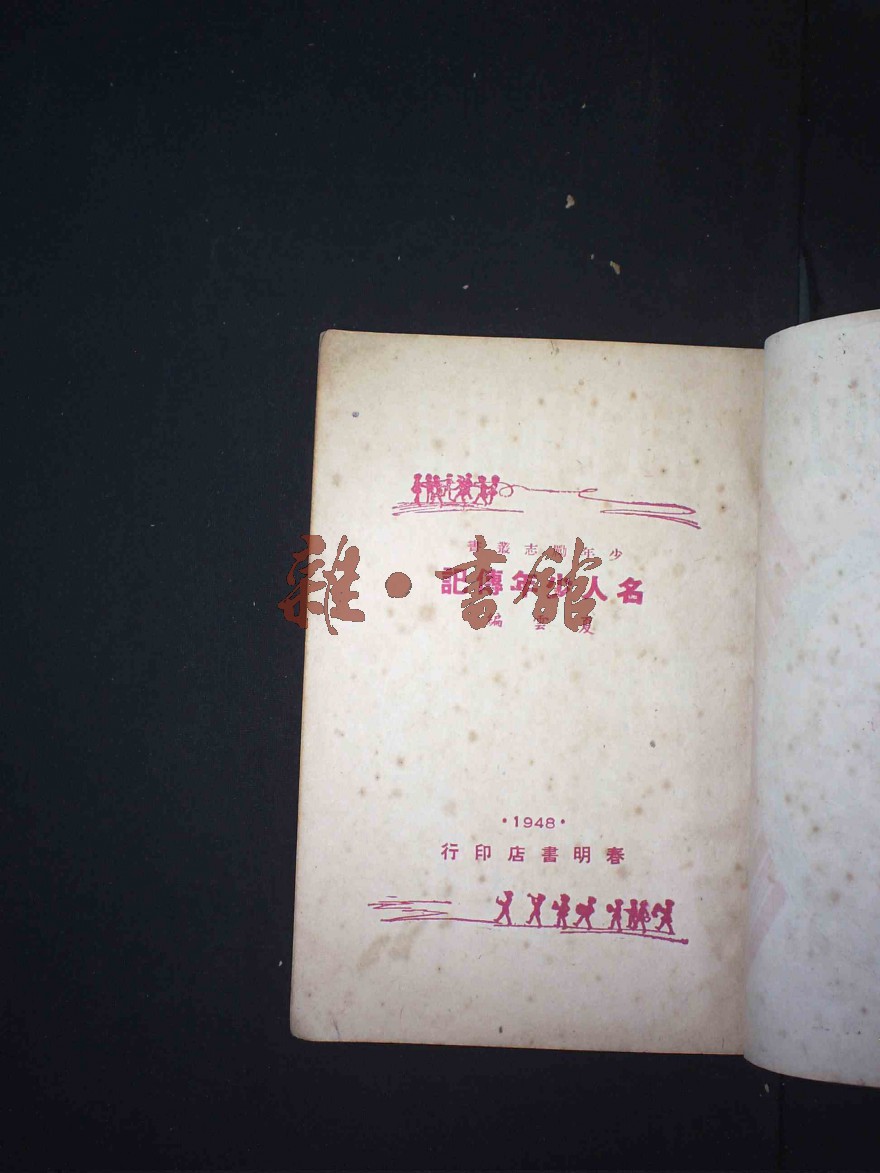 少年勵志叢書
名人少年傳記
夏雲編
·1948·
春明書店印行
雜·書館